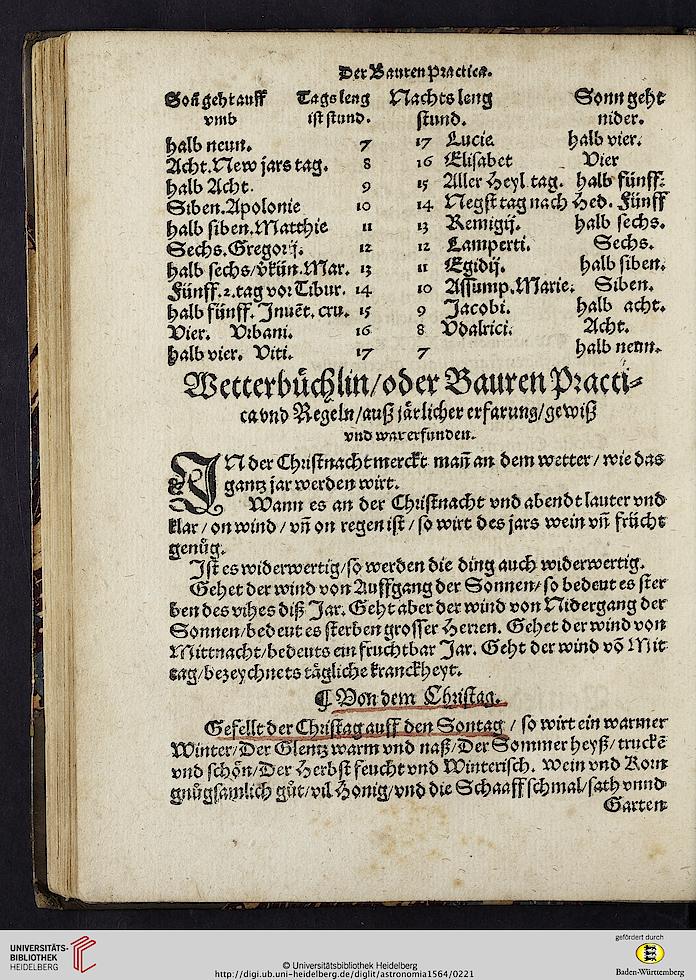 Der Bauren Practica.
Soñ geht auff Tags leng Nachts leng Sonn geht
vmb ist stund. stund. nider.
halb neun. 7 17 Lucie halb vier.
Acht. New jars tag. 8 16 Elisabet Vier
halb Acht. 9 15 Aller Heyl. tag. halb fünff.
Siben. Apolonie 10 14 Negst tag nach Hed. Fünff
halb siben. Matthie 11 13 Remigij. halb sechs.
Sechs. Gregorij. 12 12 Lamperti. Sechs.
halb sechs/vkün. Mar. 13 11 Egidij. halb siben.
Fünff. 2. tag vor Tibur. 14 10 Assump. Marie. Siben.
halb fünff. Inuẽt. cru. 15 9 Jacobi. halb acht.
Vier. Vrbani. 16 8 Vdalrici. Acht.
halb vier. Viti. 17 7 halb neun.
Wetterbüchlin/oder Bauren Practi-
ca vnd Regeln/auß järlicher erfarung/gewiß
vnd war erfunden.
IN der Christnacht merckt mañ an dem wetter/wie das
gantz jar werden wirt.
Wann es an der Christnacht vnd abendt lauter vnd
klar/on wind/vñ on regen ist/so wirt des jars wein vñ frücht
genůg.
Ist es widerwertig/so werden die ding auch widerwertig.
Gehet der wind von Auffgang der Sonnen/so bedeut es ster
ben des vihes diß Jar. Geht aber der wind von Nidergang der
Sonnen/bedeut es sterben grosser Herren. Gehet der wind von
Mittnacht/bedeuts ein fruchtbar Jar. Geht der wind võ Mit
tag/bezeychnets tägliche kranckheyt.
¶ Von dem Christag.
Gefellt der Christag auff den Sontag/so wirt ein warmer
Winter/Der Glentz warm vnd naß/Der Sommer heyß/truckẽ
vnd schön/Der Herbst feucht vnd Winterisch. Wein vnd Korn
gnůgsamlich gůt/vil Honig/vnd die Schaaff schmal/sath vnnd
Garten
UNIVERSITÄTS-
BIBLIOTHEK
HEIDELBERG
© Universitätsbibliothek Heidelberg
http://digi.ub.uni-heidelberg.de/diglit/astronomia1564/0221
gefördert durch
Baden-Württemberg